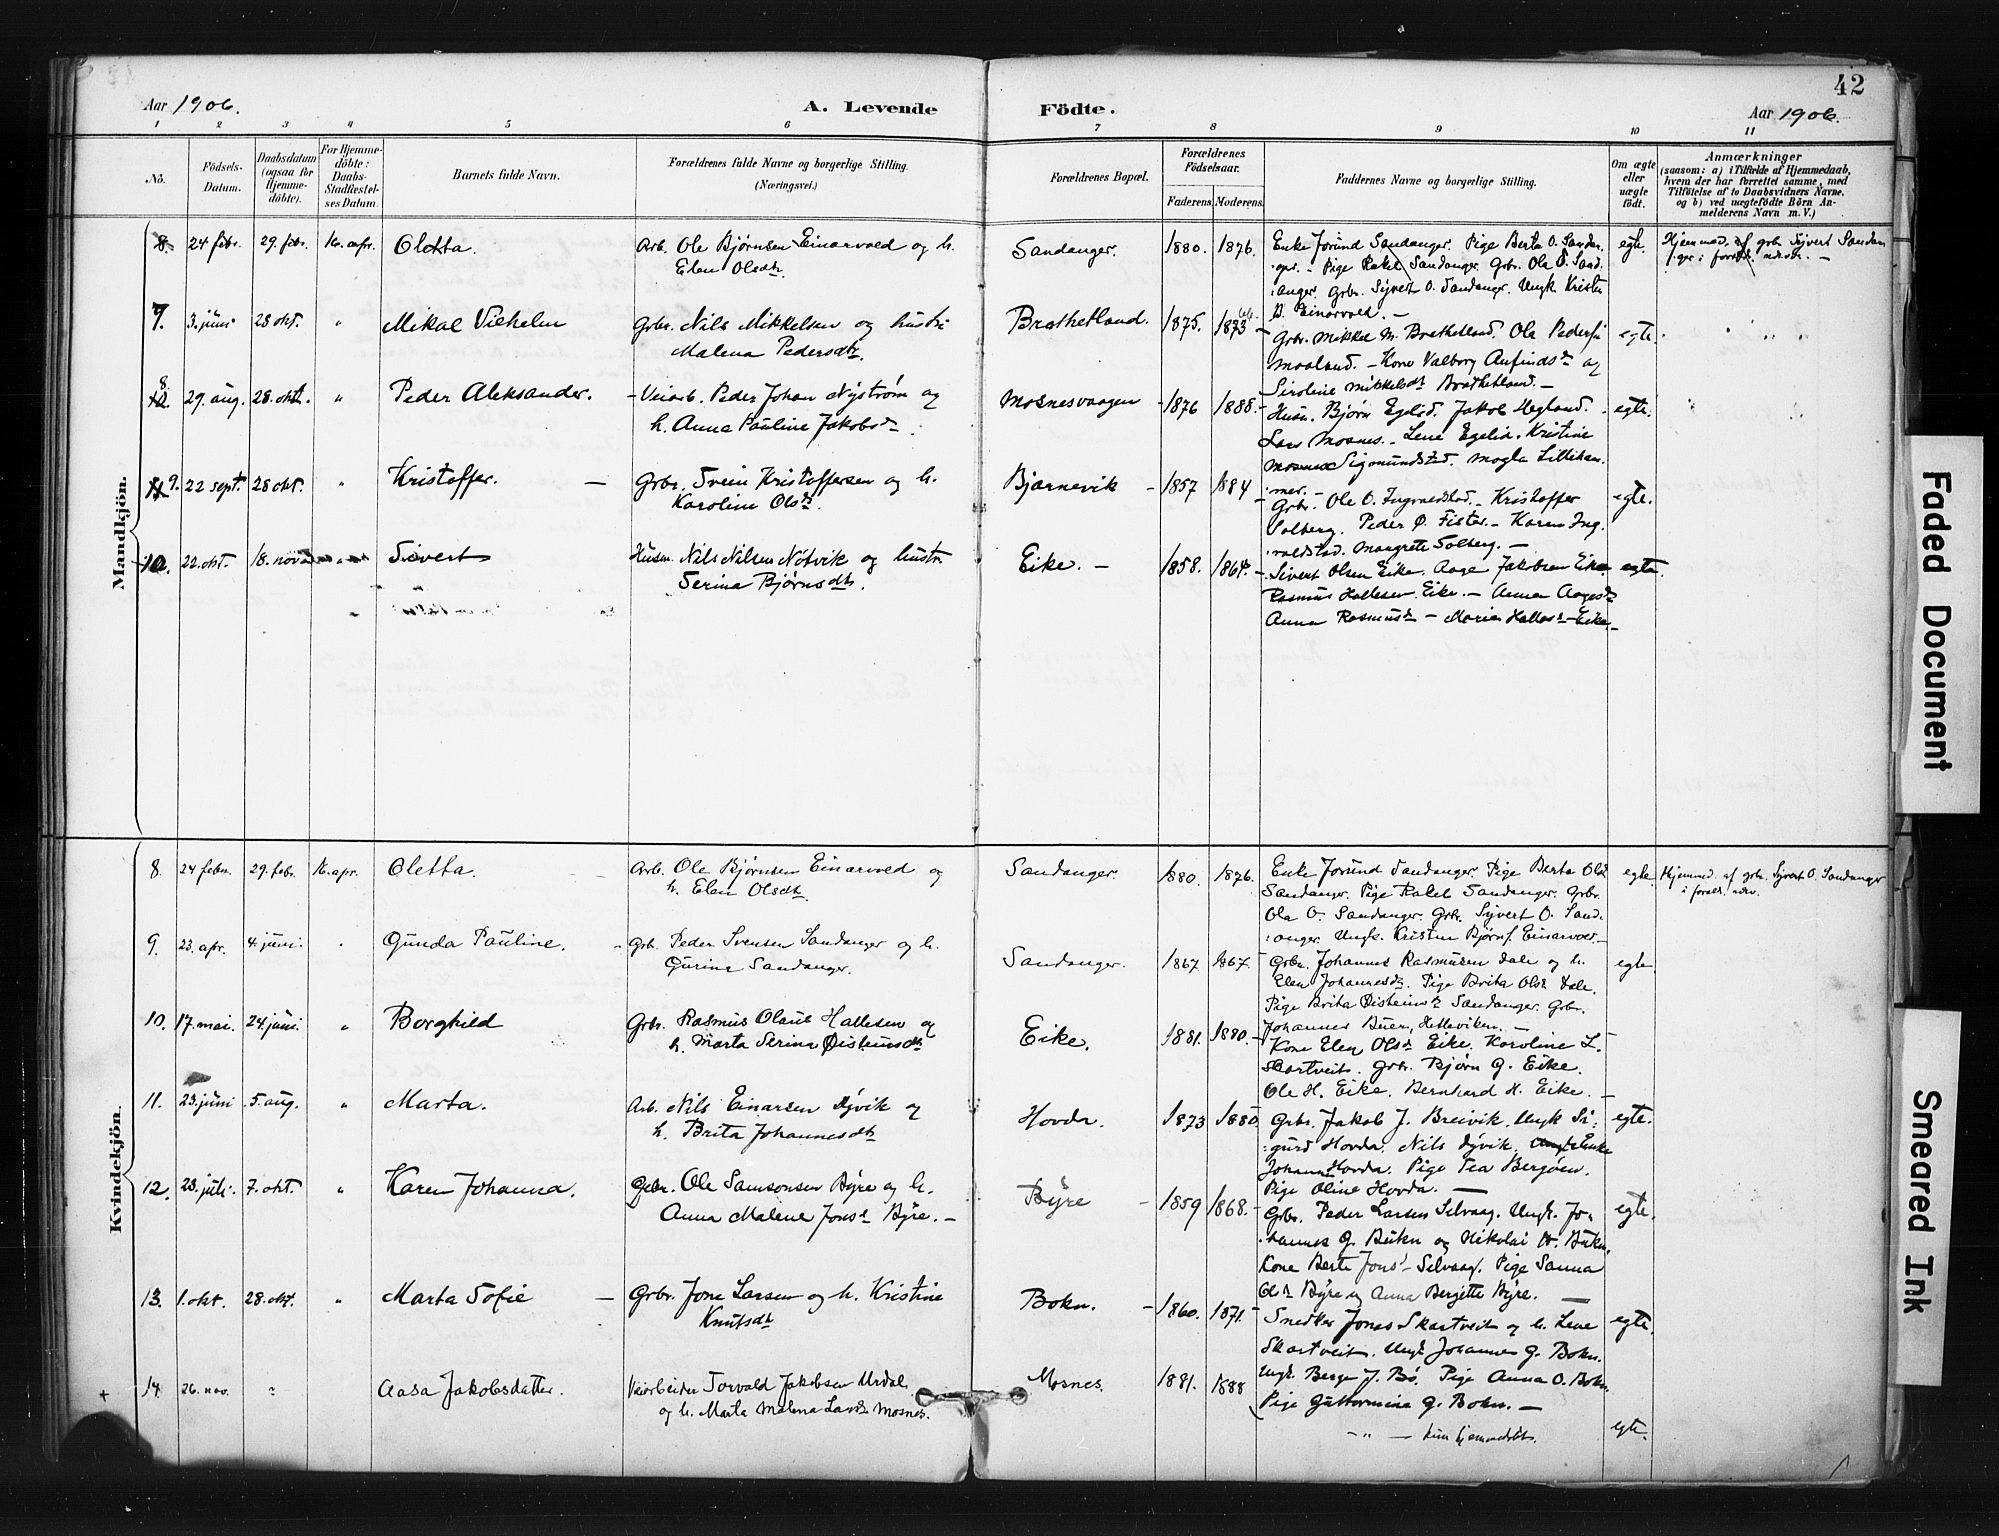 42
Aar 1906.
A. Levende Födte.
Aar 1906.
1 2 3 4 5 6 7 8 9 10 11
No.
Födsels-
Datum.
Daabsdatum
(ogsaa for
Hjemme-
döbte).
For Hjemme-
döbte:
Daabs-
Stadfæstel-
ses Datum.
Barnets fulde Navn.
Forældrenes fulde Navne og borgerlige Stilling.
(Næringsvei.)
Forældrenes Bopæl.
Forældrenes
Födselsaar.
Faderens. Moderens.
Faddernes Navne og borgerlige Stilling.
Om ægte
eller
uægte
født.
Anmærkninger
(saasom: a) i Tilfælde af Hjemmedaab,
hvem der har forrettet samme, med
Tilföielse af to Daabsvidners Navne,
og b) ved uægtefödte Börn An-
melderens Navn m. V.)
Mandkjön.
8. 24 febr. 29. febr. 16. apr. Oletta Arb. Ole Bjørnsen Einarvold og h.
Elen Olsdtr.
Sandanger. 1880. 1876. egte.
Enke Jorund Sandanger. Pige Berta O. Sandan
ger. – Pige Rakel Sandanger. Grbr. Ola O. Sand
anger. Grbr. Sjvert O. Sandanger. Ungk. Kristen
B. Einarvold. –
Hjemmed. af grbr. Sjvert Sandan
7. 3. juni 28 okt. " Mikal Vilhelm Grbr. Nils Mikkelsen og hustru
Malena Pedersdtr.
Brathetland. 1875. 1873 egte.
Grbr. Mikkel M. Brathetland. Ola Pedersen
Maaland. – Kone Valborg Anfindsdr og
Siroline Mikkelsdtr Brathetland. –
8. 29. aug. 28. okt. " Peder Aleksander. – Veiarb. Peder Johan Nystrøm og
h. Anna Pauline Jakobsdr.
Mosnesvaagen 1876 1888. egte.
Husm. Bjørn Egeland. Jakob Hegland.
Lars Mosnes. – Lene Egelid. Kristine
Mosnes
9. 22 sept. 28 okt. " Kristoffer. – Grbr. Svein Kristoffersen og h.
Karoline Olsdr.
Bjørnevik – 1857 1884 egte.
Grbr. Ole O. Kristoffer
Solberg. Peder Ø. Fister. – Karen Ing
valdstad. Margrete Solberg. –
10. 22. okt. 18. nov. Sivert Husm. Nils Nilsen Notvik og hustru
Serina Bjørnsdtr.
Eike. – 1858. 1864. egte.
Sivert Olsen Eike. Aage Jakobsen Eike
Rasmus Hallesen Eike. – Anna Aagesdr
Anna Rasmusdr – Maria Hallesdr – Eike. –
Kvindekjön.
8. 24 febr. 29. febr. 16. apr. Oletta. Arb. Ole Bjørnsen Einarvold og
h. Elen Olsdtr.
Sandanger. 1880. 1876. egte.
Enke Jorund Sandanger. Pige Berta Olsdr
Sandanger. Pige Rakel Sandanger. Grbr.
Ola O. Sandanger. Grbr. Sjvert O. Sand
anger. Ungk. Kristen Bjørns. Einarvold. –
Hjemmed. af grbr. Sjvert O. Sandanger
9. 23. apr. 4. juni. " Gunda Pauline. – Grbr. Peder Svensen Sandanger og h.
Gurine Sandanger.
Sandanger. 1867 1867. egte.
Grbr. Johannes Rasmussen Dale og h.
Elen Johannesdtr. Pige Brita Olsdr Dale.
Pige Brita Øisteinsdr Sandanger. Grbr.
Johannes Buer, Hetleviken. –
10. 17. mai. 24. juni. " Borghild Grbr. Rasmus Olaus Hallesen og
h. Marta Serina Øisteinsdtr
Eike. 1881. 1880. –
Kone Elen Olsdr Eike. Karoline L.
Skartveit. Grbr. Bjørn G. Eike.
Ole H. Eike. Bernhard H. Eike. –
11. 23. juni 5. aug. " Marta. Arb. Nils Einarsen Dyvik og
h. Brita Johannesdtr
Hovda. 1873 1880. egte.
Grbr. Jakob J. Breivik. Ungk Si
gurd Hovda. Nils Dyvik. Enke
Johanna Hovda. Pige Tea Bergøen.
Pige Oline Hovda. –
12. 23. juli. 7. okt. " Karen Johanna. Grbr. Ole Samsonsen Byre og h.
Anna Malene Jonsdr Byre. –
Byre – 1859 1868. egte.
Grbr. Peder Larsen Selvaag. Ungk. Jo-
hannes G. Bukn og Nikolai Bukn.
Kone Berte Jonsdr Selvaag. Pige Sanna
Olsdr Byre og Anna Bergitte Byre. –
13. 1. okt. 28. okt. " Marta Sofie – Grbr. Jone Larsen og h. Kristine
Knutsdtr
Bokn. – 1860. 1871. egte.
Snedker Jonas Skartveit og h. Lene
Skartveit. Ungk Johannes G. Bokn.
Ungk. Berge J. Bø. Pige Anna O. Bokn.
Pige Guttormine G. Bokn. –
14 26. nov. " Aasa Jakobsdatter. Veiarbeider Torvald Jakobsen Urdal
og h. Marta Malena Larsdr Mosnes.
Mosnes. 1881. 1888 egte.
– " – kun hjemmedøbt.
Faded Document
Smeared Ink